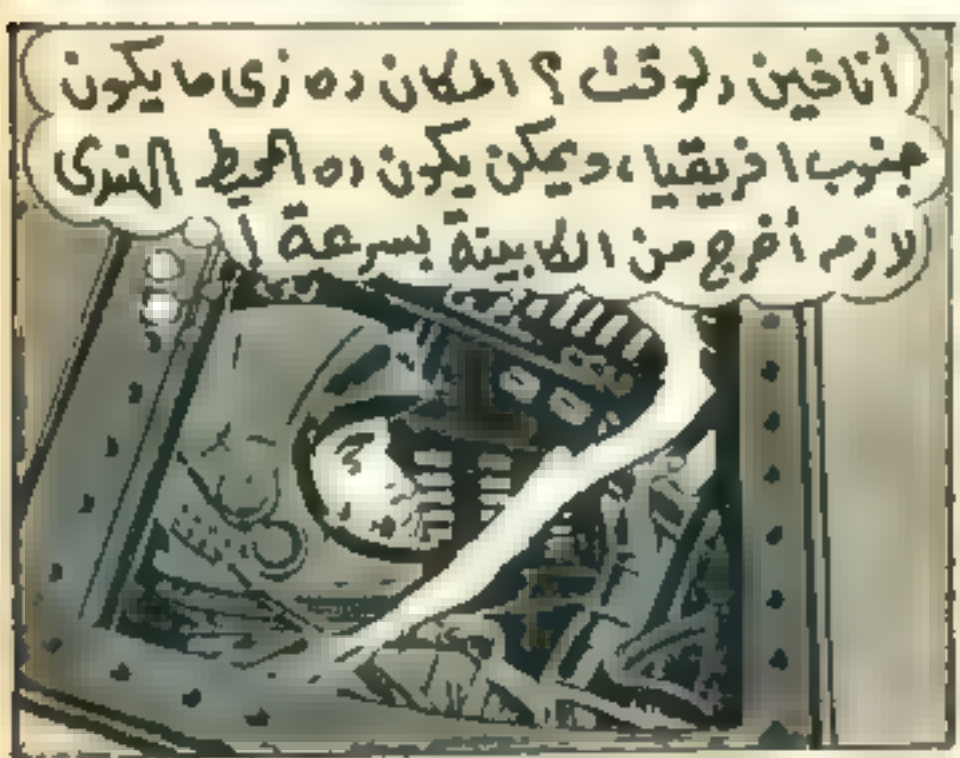 أنا فين دلوقت ؟ المكان ده زى ما يكون
جنوب افريقيا، ويمكن يكون ده المحيط الهندى
لازم أخرج من الكابينة بسرعة !